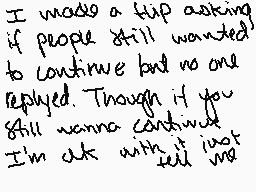 I made a flip asking
if people still wanted
to continue but no one
replyed. Though if you
still wanna continue
I'm ok with it just
tell me